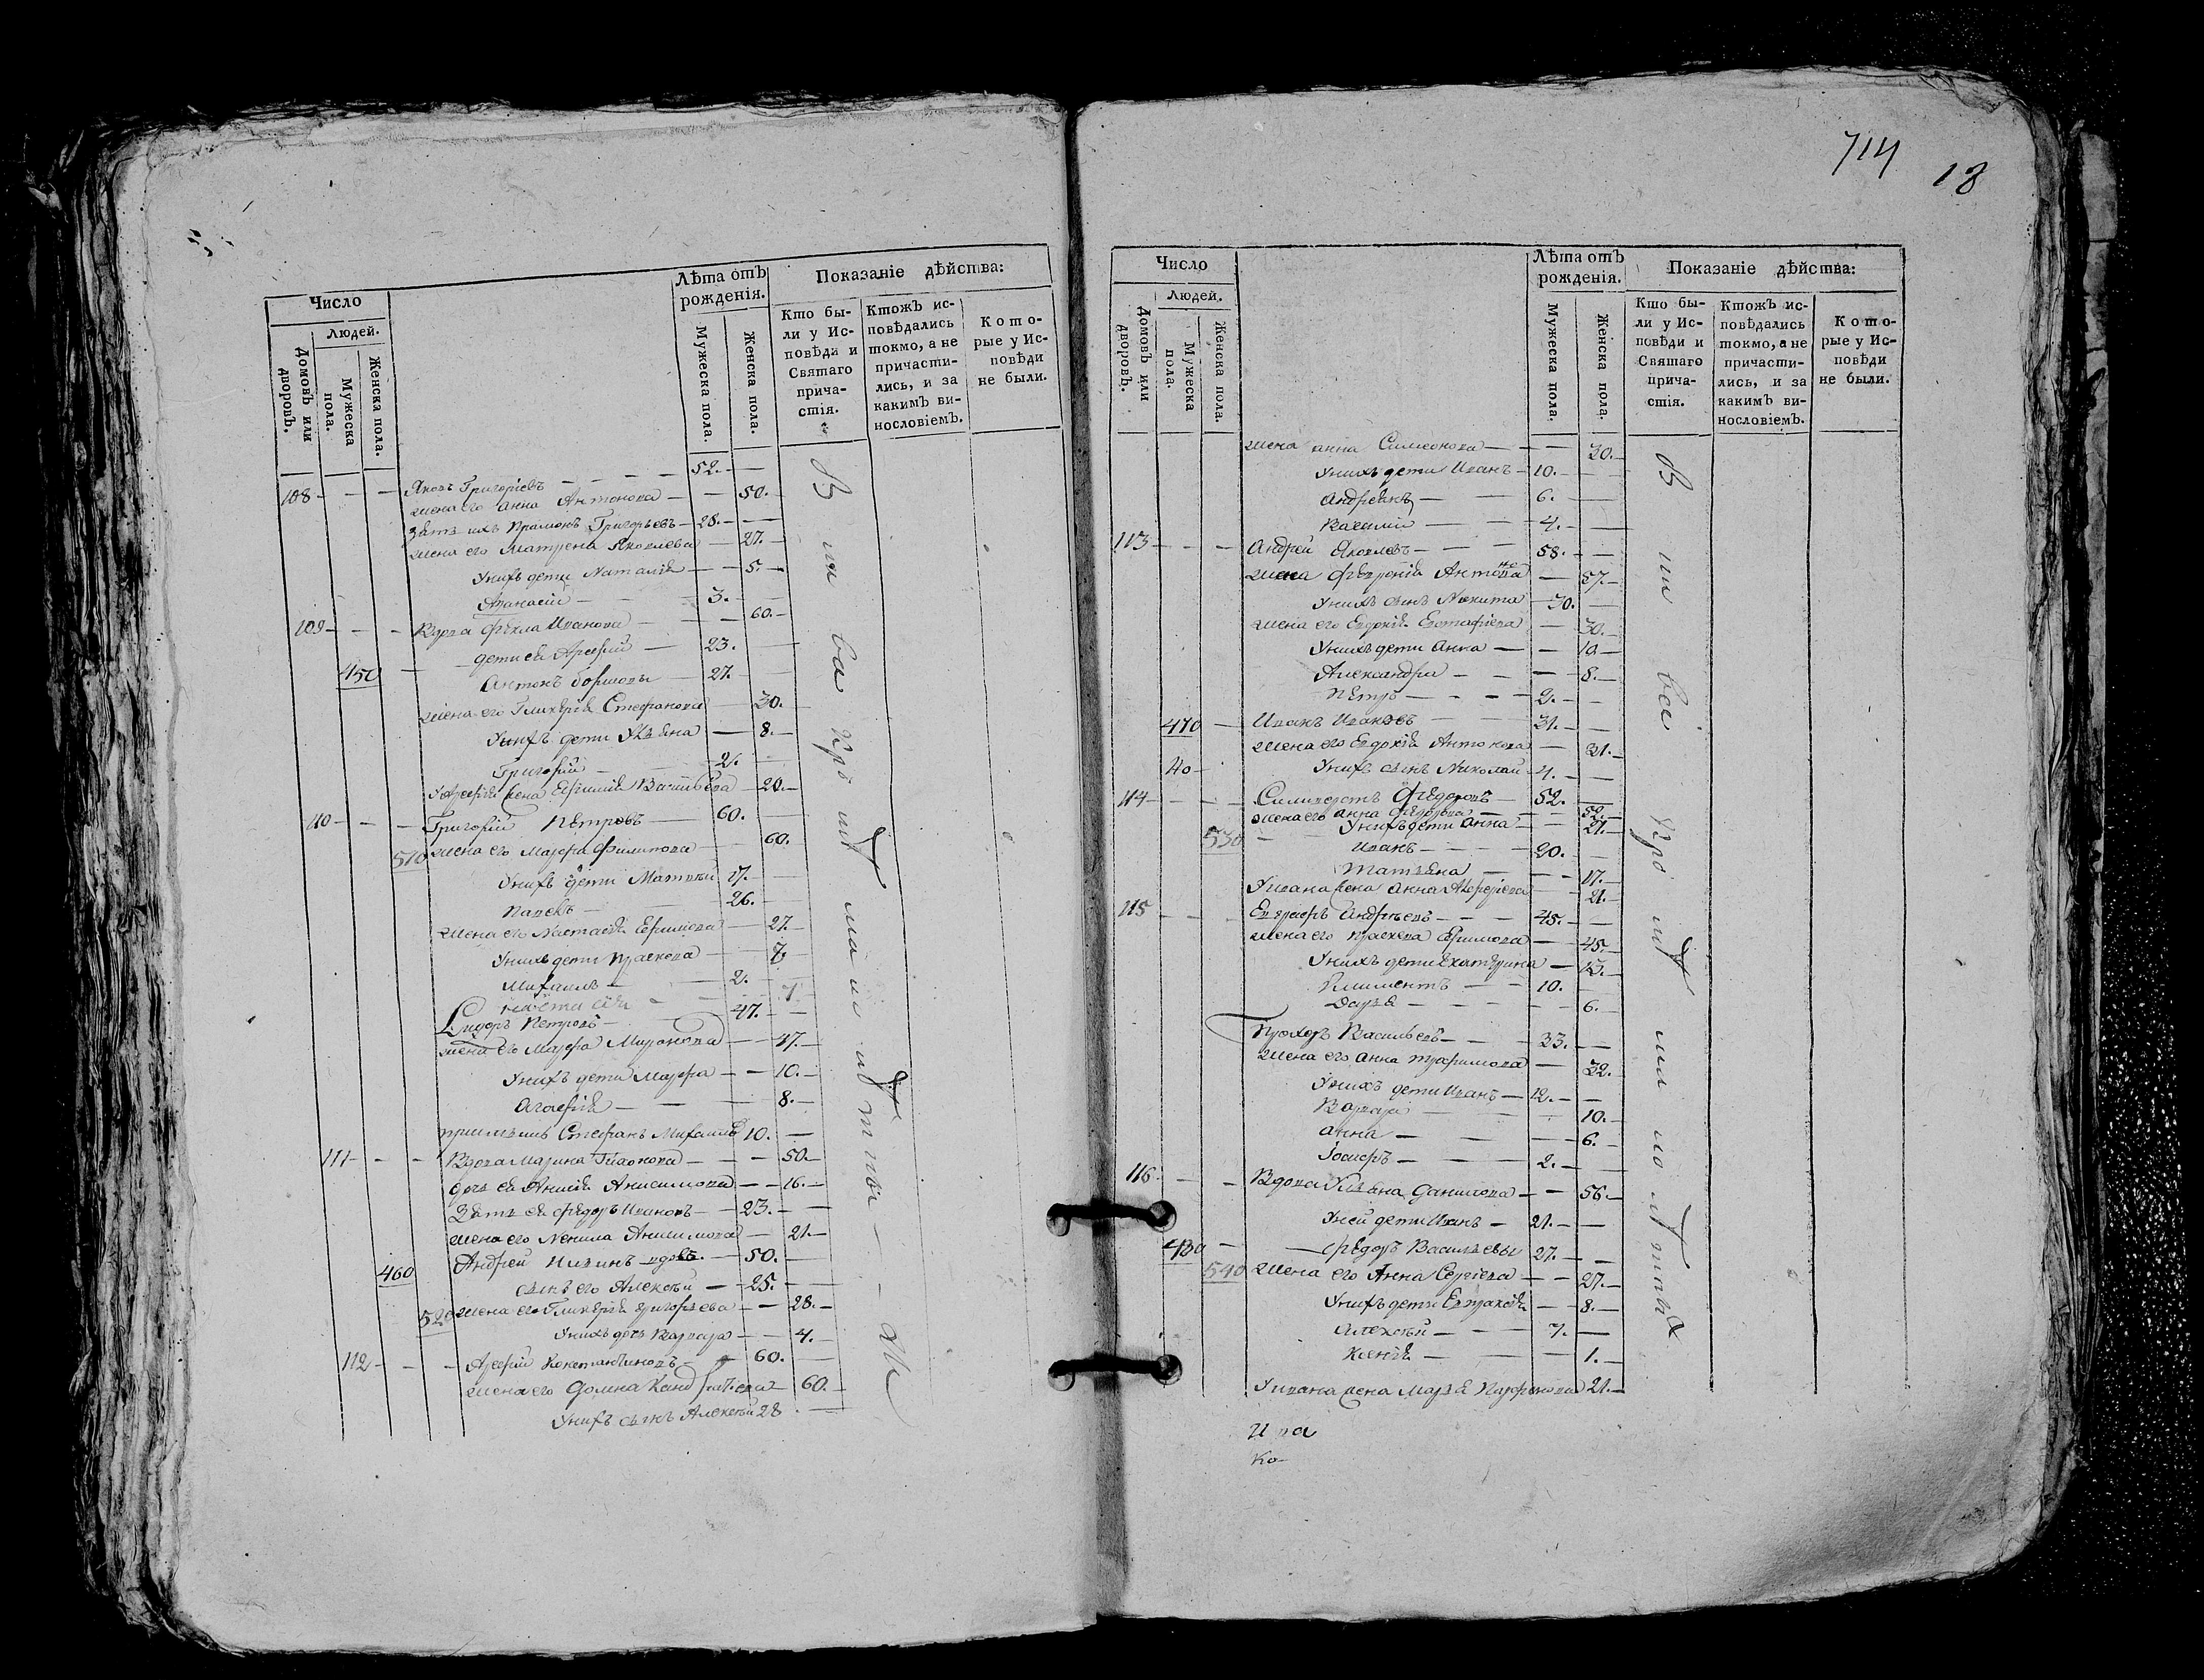 Число
Людей.
Домовъ или дворовъ.
Мужеска пола.
Женска пола.
Лѣта отъ рожденія.
Мужеска пола.
Женска пола.
Показаніе дѣйства:
Кто бы-
ли у Ис-
повѣди и
Святаго
прича-
стія.
Ктожъ ис-
повѣдались
токмо, а не
причасти-
лись, и за
какимъ ви-
нословіемъ.
Кото-
рые у Ис-
повѣди
не были.
108 - - - Яковъ Григорьевъ - - - 52. -
жена его Анна Антонова - - 50. -
Зять ихъ Григорьевъ - 28. -
жена его Матрена Яковлева - 27. -
Унихъ дети Наталія - - 5. -
Афанасій - - 3. -
109 - - - Вдова Фекла Иванова - - 60. -
дети ея Арефій - 23.
450 - Антонъ - 27. -
жена его Гликерія Стефанова - 30. -
Унихъ дети Ульяна - 8. -
Григорій - 2. -
У Арефія жена Евфимія Васильева - 20. -
110 - - - Григорій Петровъ - 60.
510 жена его Марфа Филипова - 60.
Унихъ дети Матвей 17. -
Павелъ - 26. -
жена его Настасія Ефимова - 27. -
Унихъ дети Праскова - 7. -
Михаилъ - 2. -
Сидоръ Петровъ - 47. -
жена его Марфа Миронова - - 47. -
Унихъ дети Марфа - - 10. -
Агафія - - 8. -
Стефанъ Михаиловъ 10. -
111 - - - Вдова Марина - - 50. -
дочь ея Анисія Анисимова - - 16. -
Зять ея Федоръ Ивановъ - 23. -
жена его Ненила Анисимова - 21. -
460 Андрей вдовъ. - 50. -
сынъ его Алексей - 25. -
520 жена его Гликерія Григорьева - - 28. -
Унихъ дочь Варвара - - 4. -
112 - - - Арефій Константиновъ - 60. -
жена его Домна - 60. -
Унихъ сынъ Алексей 28. -
714
18
Число
Людей.
Домовъ или дворовъ.
Мужеска пола.
Женска пола.
Лѣта отъ рожденія.
Мужеска пола.
Женска пола.
Показаніе дѣйства:
Кто бы-
ли у Ис-
повѣди и
Святаго
прича-
стія.
Ктожъ ис-
повѣдались
токмо, а не
причасти-
лись, и за
какимъ ви-
нословіемъ.
Кото-
рые у Ис-
повѣди
не были.
жена Анна Симеонова - - 30. -
Унихъ дети Иванъ - 10. -
Андреянъ - 6. -
Василий - 4. -
113 - - - Андрей Яковлевъ - 58. -
жена Феврония Антонова - 57. -
Унихъ сынъ Никита - 30. -
жена его Евдокія Евстафіева - 30. -
Унихъ дети Анна - - 10 -
Александра - - 8. -
Петръ - - 2. -
470 - Иванъ Ивановъ - 31. -
жена его Евдокія Антонова - 31. -
40 - Унихъ сынъ Николай - 4. -
114 - - - Силивестъ Федоровъ - 52. -
жена его Анна Федорова - - 52. -
530 - Унихъ дети Анна - - 21. -
Иванъ - 20. -
Татьяна - - 17. -
У Ивана жена Анна - 21. -
115 - - - Евграфъ Андреевъ - 45. -
жена его Праскева Ефимова - 45. -
Унихъ дети Екатерина - 15. -
Климентъ - 10. -
Дарья - - 6. -
Прохоръ Васильевъ - 33. -
жена его Анна Трофимова - 32. -
Унихъ дети Иванъ - 12. -
Варвара - - 10. -
Анна - - 6. -
Іосифъ - 2. -
116 - - - Вдова Ульяна Данилова - - 56. -
Уней дети Иванъ - 21. -
480 - Федоръ Васильевы 27. -
540 жена его Анна Сергіева - - 27. -
Унихъ дети Евпраксія - - 8. -
Алексей - 7. -
Ксенія - - 1. -
У Ивана жена Марья Парфенова 21. -
Ива
Ко-